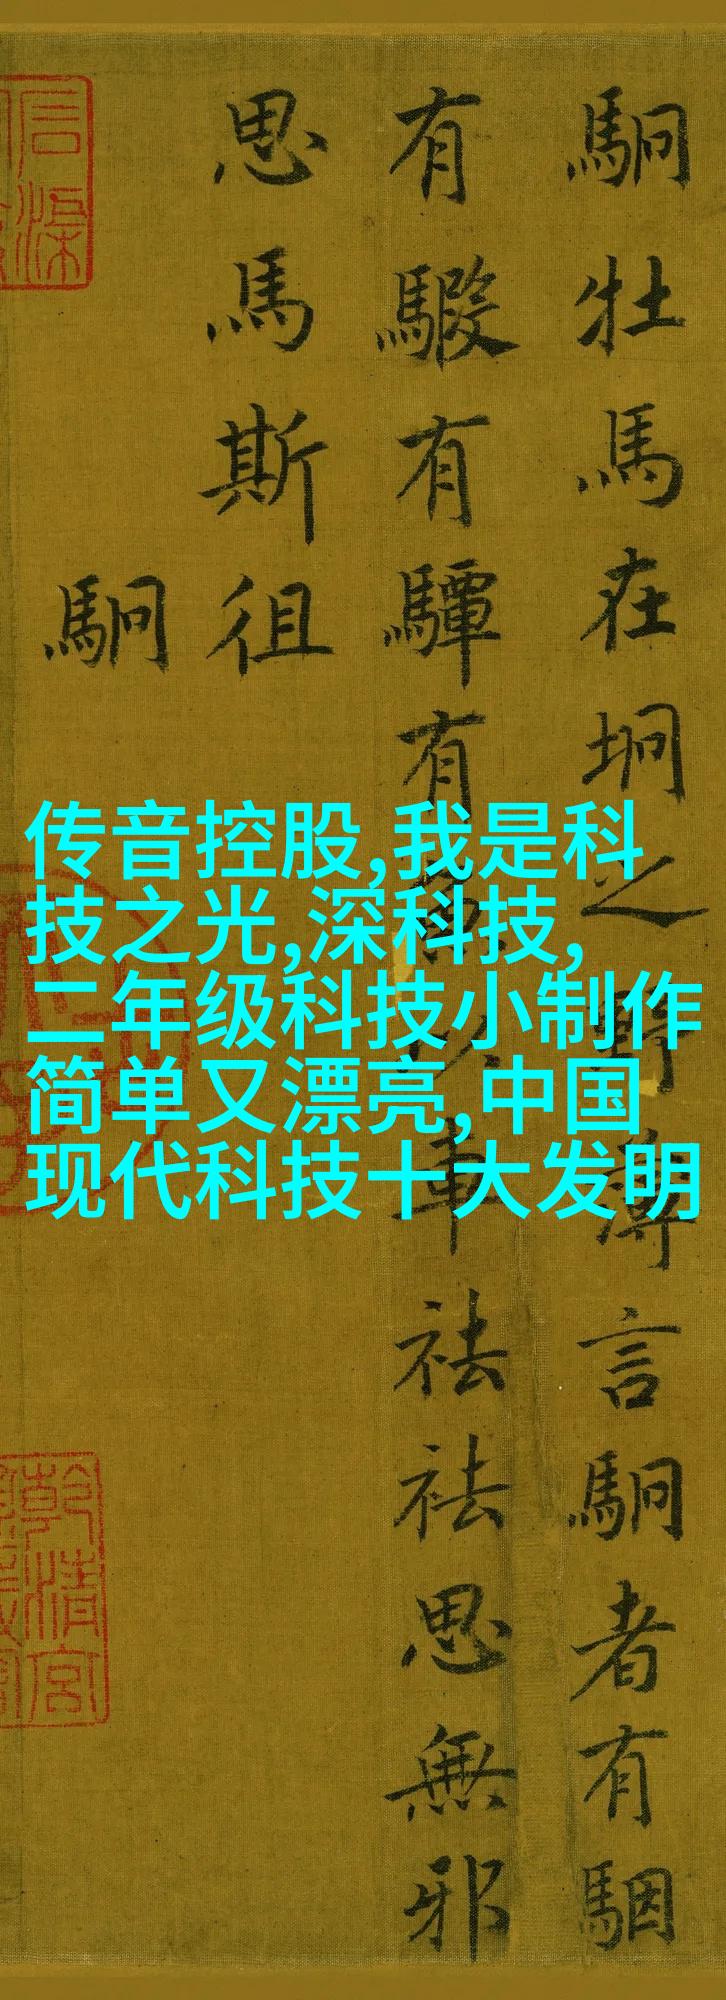 駉牡馬在坰之野薄言駉者有駰
有騢有驔有魚以車祛祛思無邪
思馬斯徂
駉
传音控股,我是科
技之光,深科技,
二年级科技小制作
简单又漂亮,中国
现代科技十大发明
乾清宮